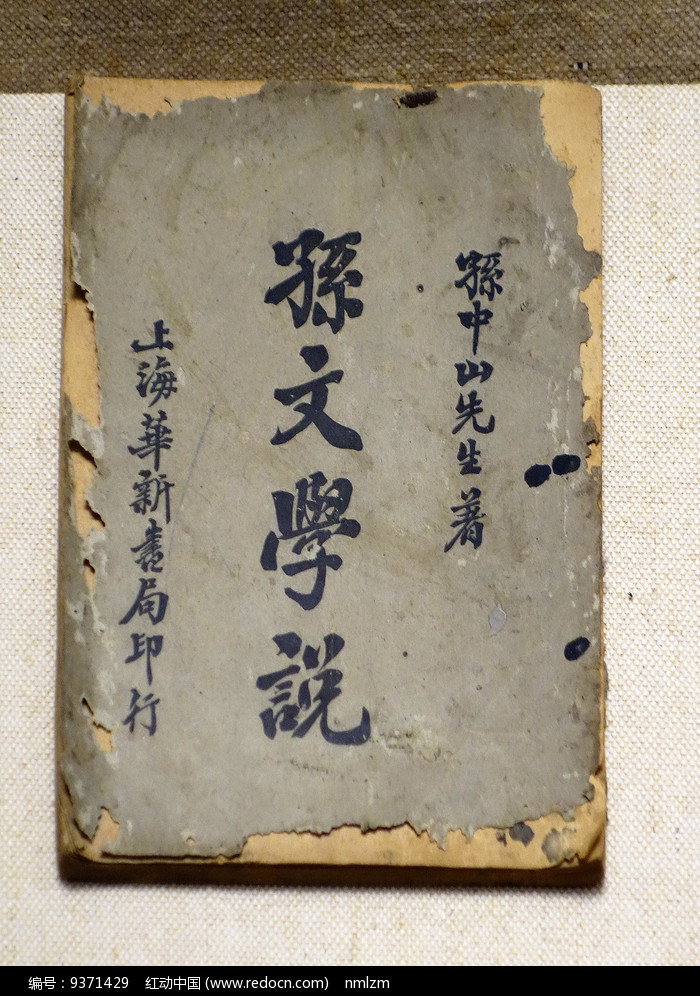 孫中山先生著
孫文學説
上海華新書局印行
编号：9371429 红动中国 (www.redocn.com) nmlzm